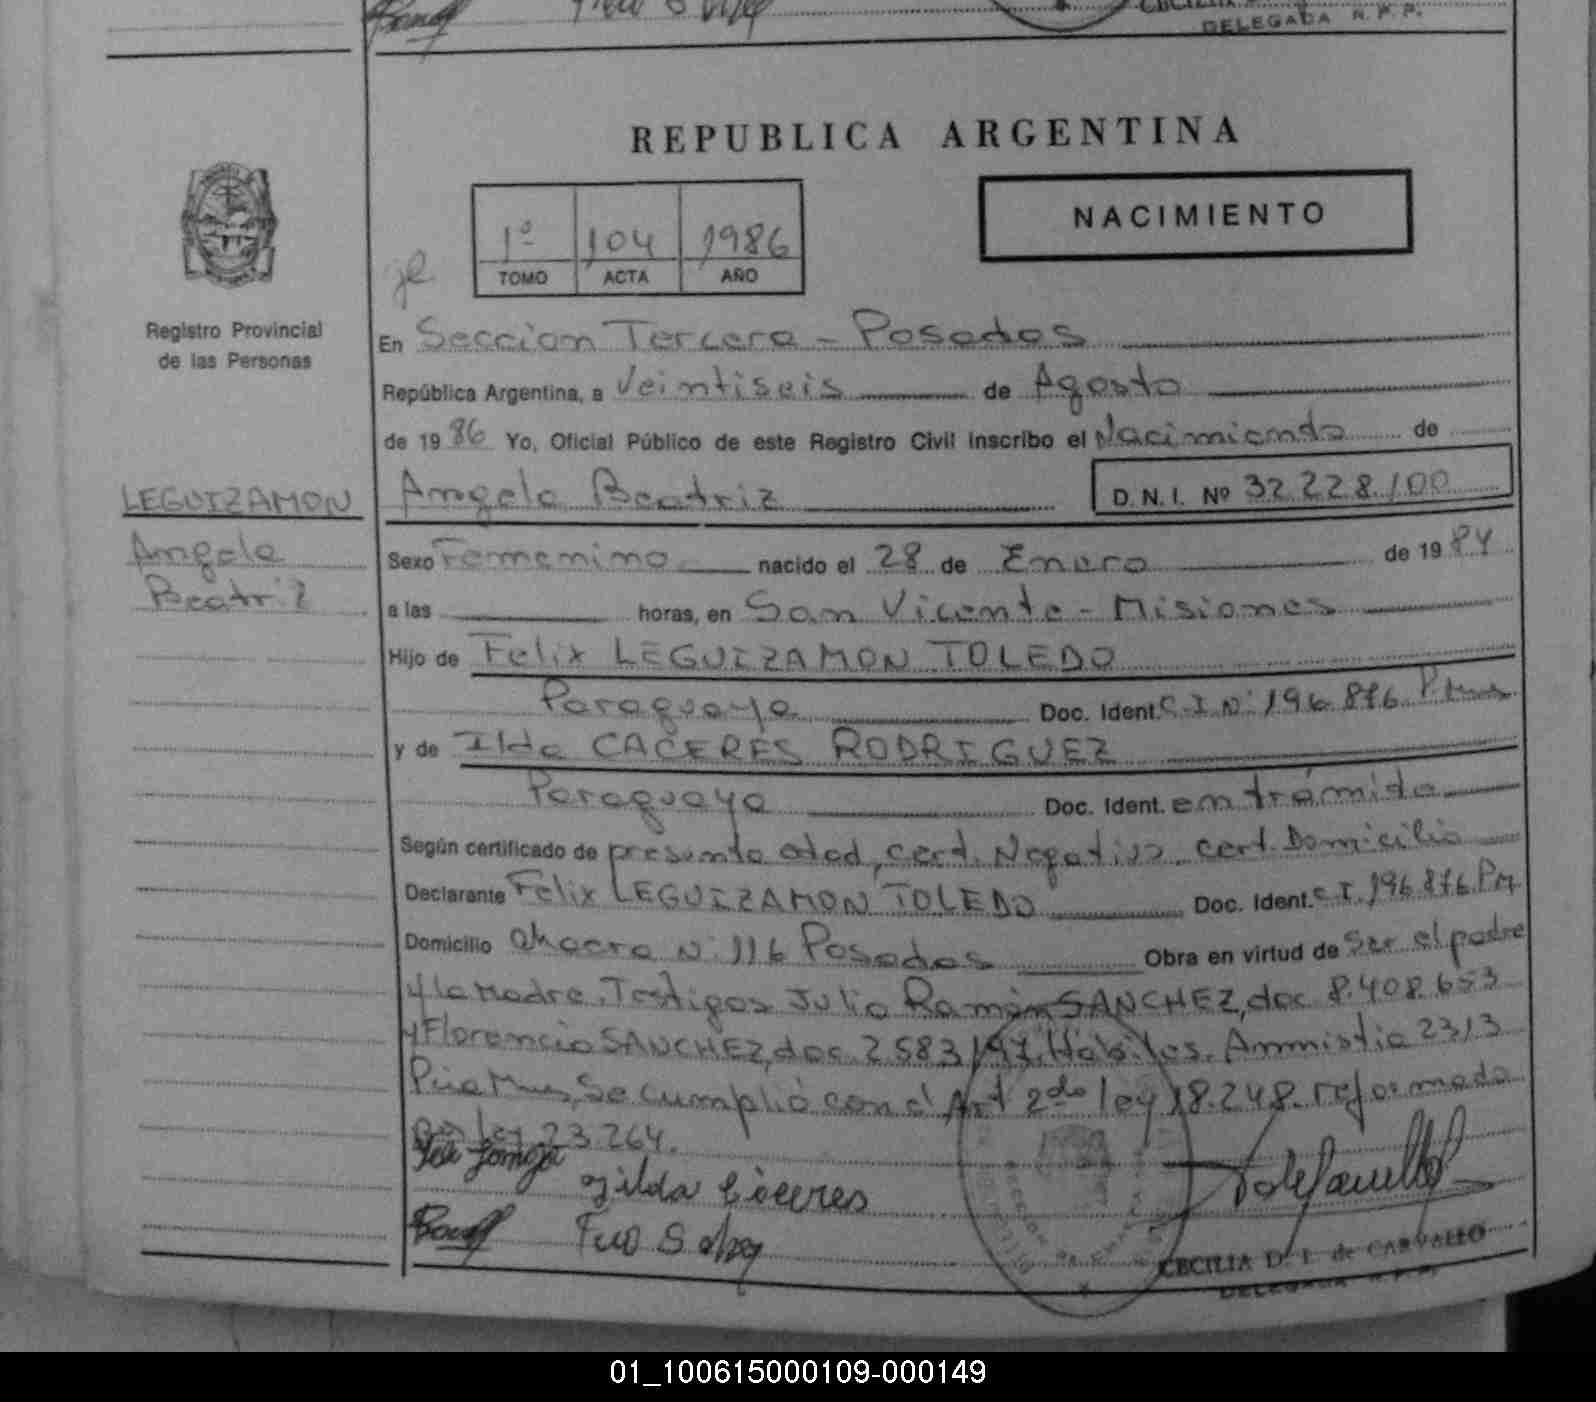 DELEGADA R.P.P.
REPUBLICA ARGENTINA
NACIMIENTO
1º 104 1986
TOMO ACTA AÑO
Registro Provincial
de las Personas
En Seccion Tercera - Posadas
República Argentina, a Veintiseis de Agosto
de 1986 Yo, Oficial Público de este Registro Civil inscribo el Nacimiento de
LEGUIZAMON
Angela Beatriz D.N.I. Nº 32.228.100
Angela
Beatriz
Sexo Femenino nacido el 28 de Enero de 1984
a las horas, en San Vicente - Misiones
Hijo de Felix LEGUIZAMON TOLEDO
Paraguaya Doc. Ident. C.I.Nº 196.876
y de Ilda CACERES RODRIGUEZ
Paraguaya Doc. Ident. en trámite
Según certificado de presunta edad, cert. Negativo, cert. Domicilio
Declarante Felix LEGUIZAMON TOLEDO Doc. Ident. C.I. 196.876
Domicilio Chacra Nº 116 Posadas Obra en virtud de Ser el padre
y la Madre. Testigos Julio Ramón SANCHEZ, doc 8.408.653
y Florencio SANCHEZ, doc 2.583.197. Hábiles. Amnistia 2313
Se cumplió con el Art 2do ley 18.248. reformada
por ley 23.264.
Gilda Cáceres
CECILIA D. I. de CARVALLO
DELEGADA R.P.P.
01_100615000109-000149